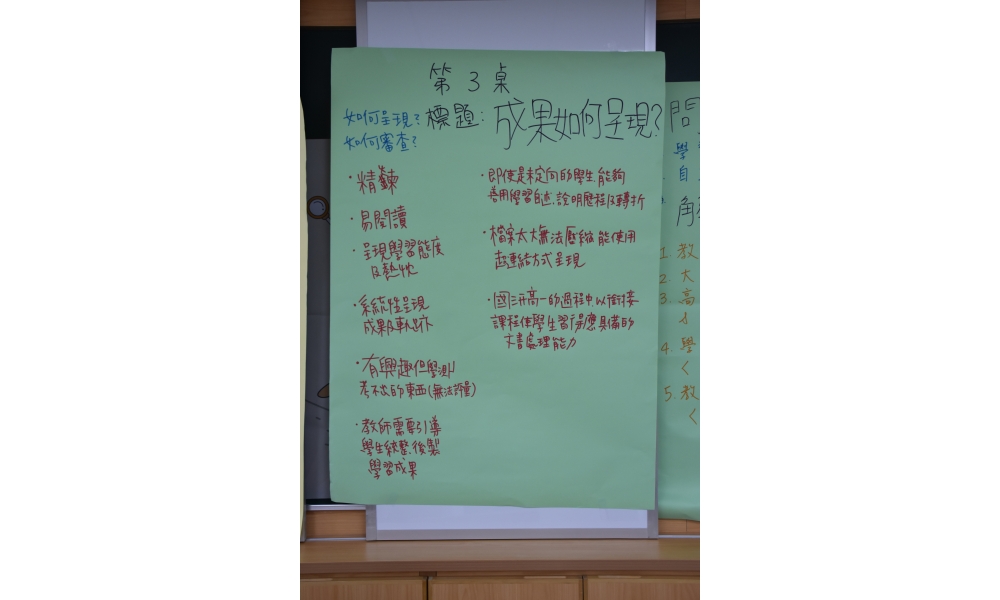 第3桌
如何呈現?
如何審查?
標題:成果如何呈現?
·精鍊
·易閱讀
·呈現學習態度
及熱忱
·系統性呈現
成果及軌跡
·有興趣但學測
考不出的東西(無法評量)
·教師需要引導
學生統整、後製
學習成果
·即使是未定向的學生能夠
善用學習自述、說明歷程及轉折
·檔案太大無法壓縮能使用
超連結方式呈現
·國三升高一的過程中以銜接
課程使學生習得應具備的
文書處理能力
問
學
自
角
1. 教
2. 大
3. 高
4. 學
5. 教